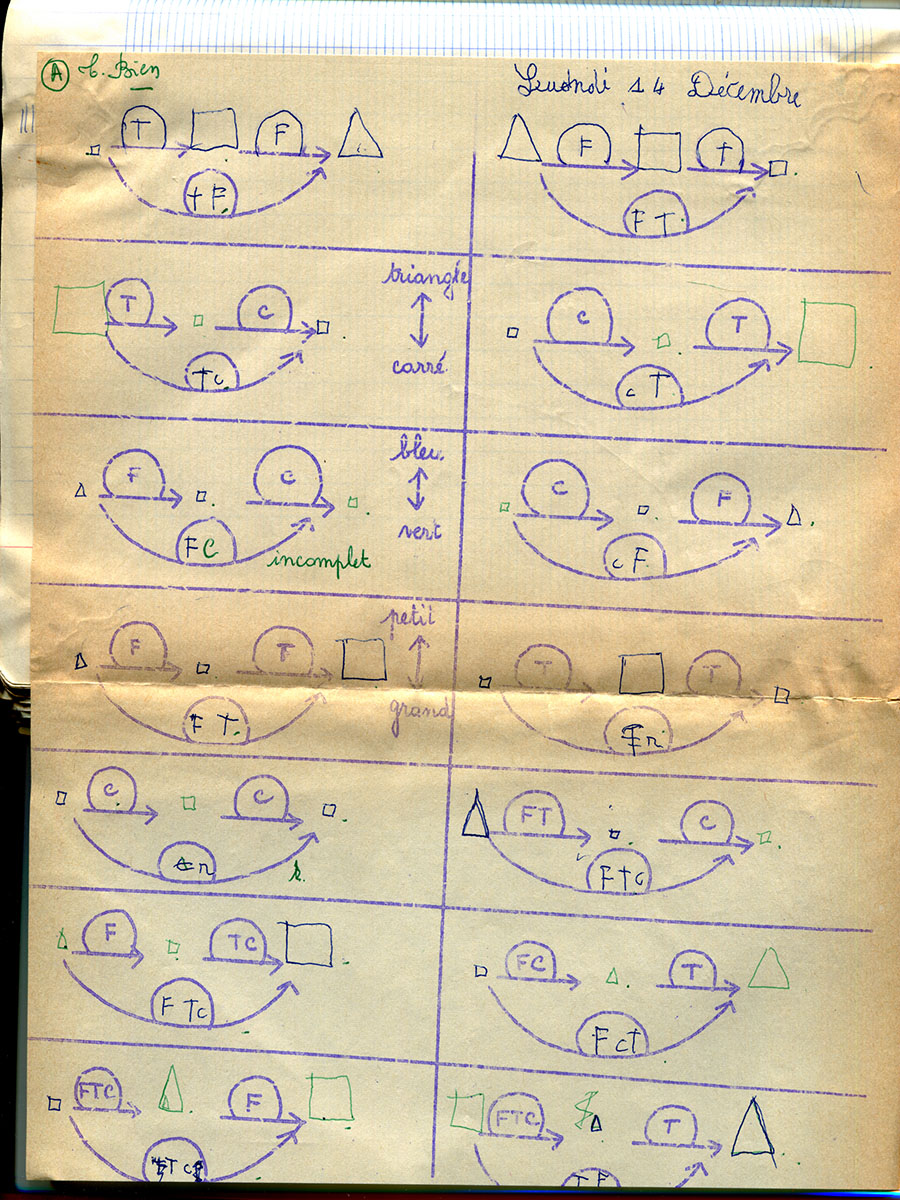 A t. Bien
Leudndi 14 Décembre
T F
t F.
F T
F T.
T C
Tc.
triangle
carré
C T
c T
F C
F C
incomplet
bleu.
vert
C F
c F.
F T
F T.
petit
grand
T T
n
C C
n
FT C
F T C
F TC
F Tc
FC T
F cT
FTC F
FTC T
T F